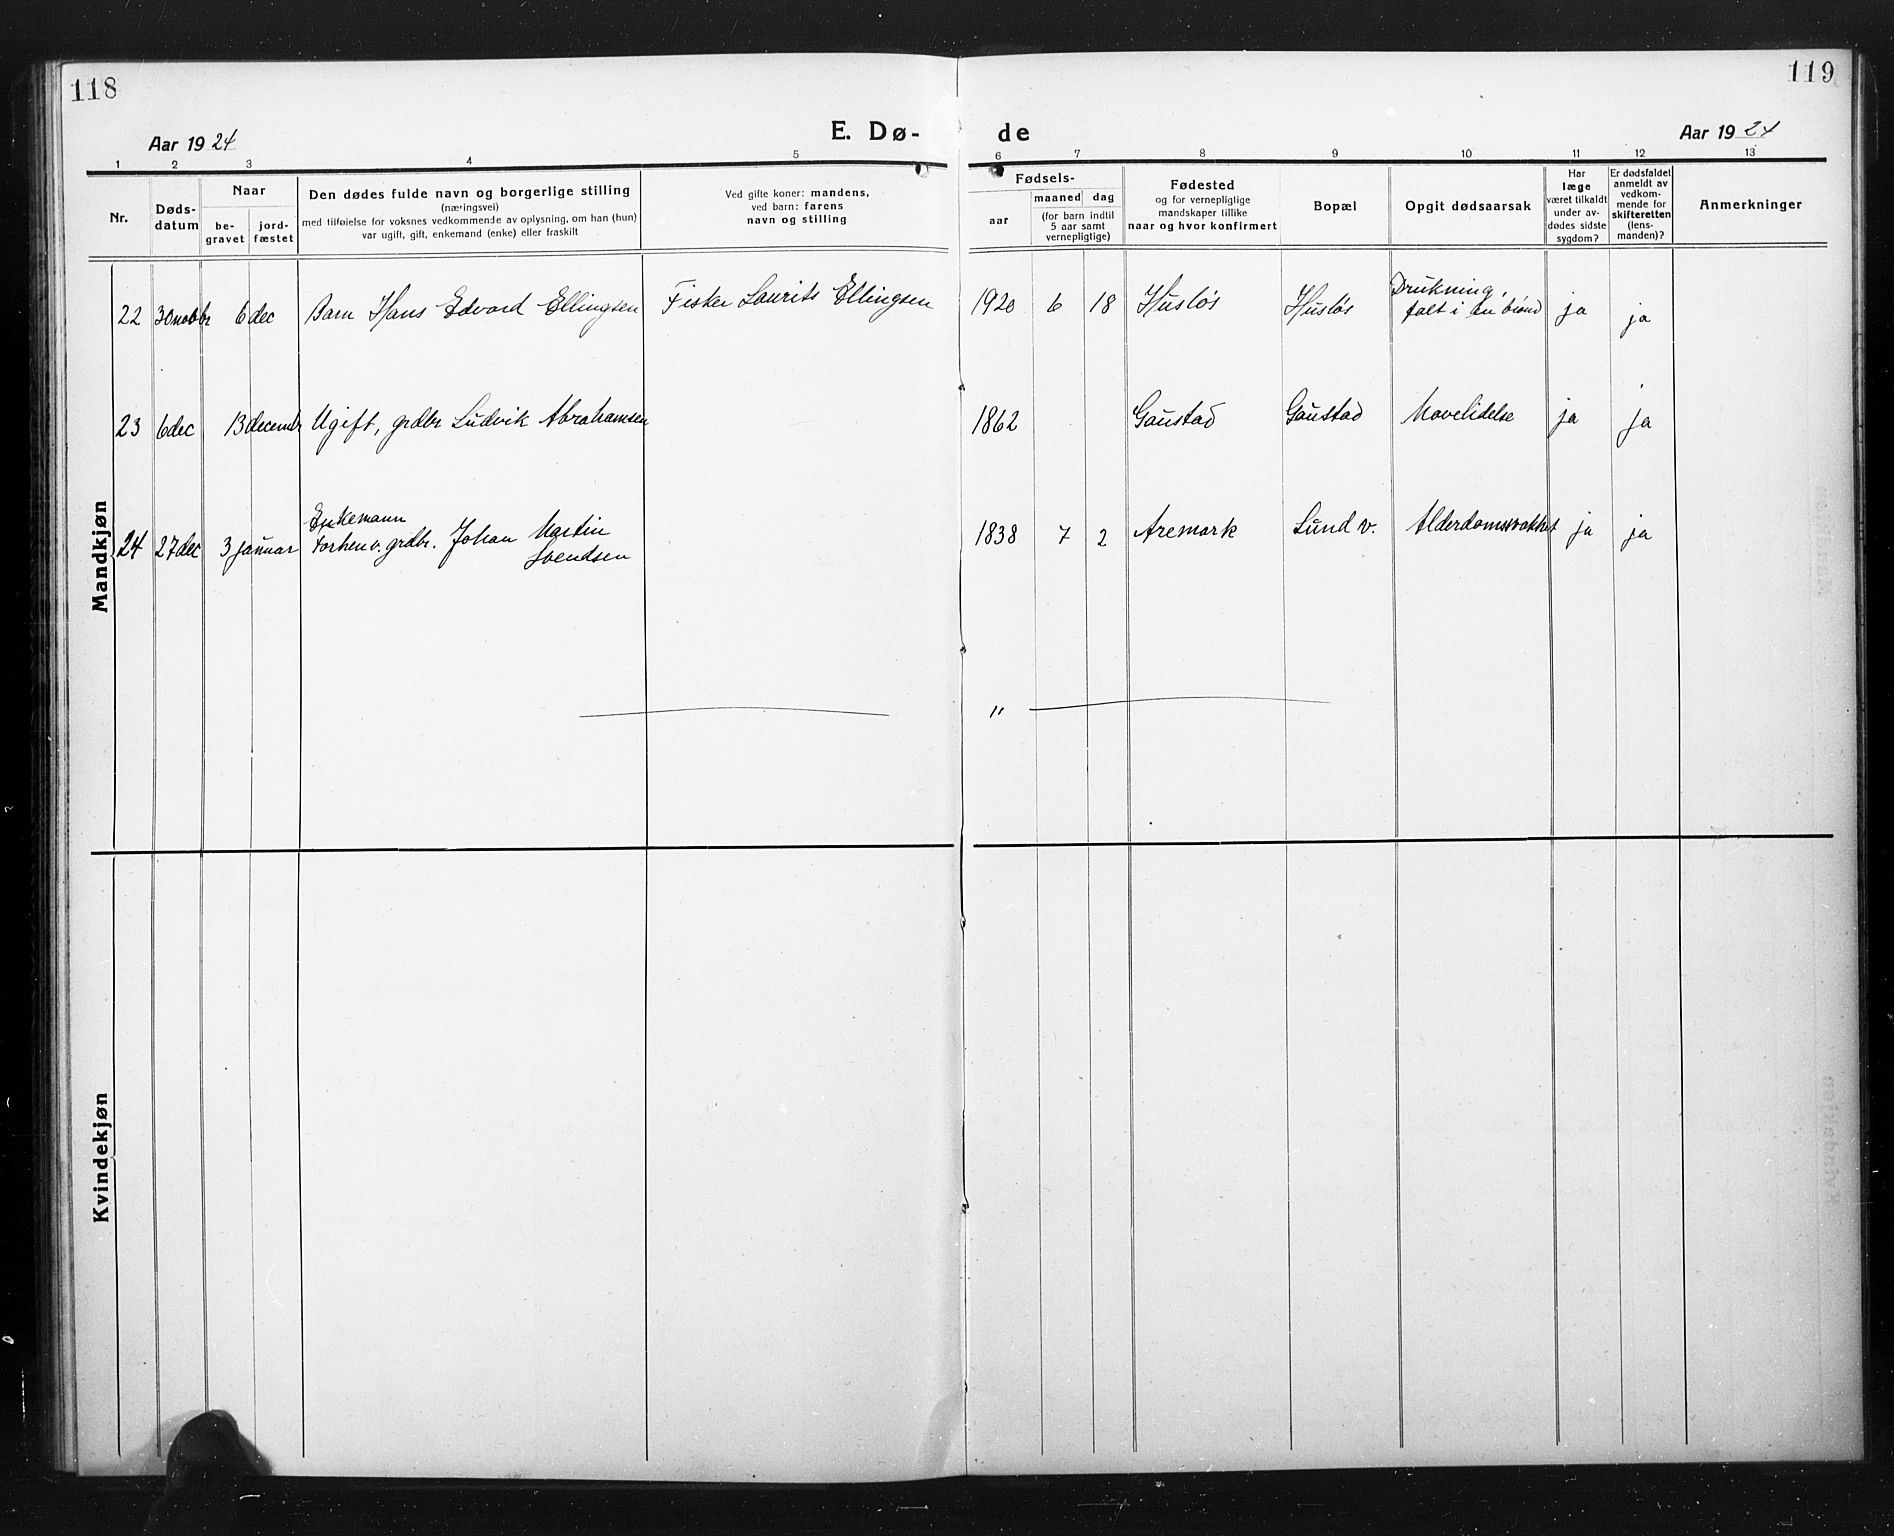 118
119
Aar 1924
E. Dø-
de
Aar 1924
1 2 3 4 5 6 7 8 9 10 11 12 13
Nr.
Døds-
datum
Naar
be-
gravet
jord-
fæstet
Den dødes fulde navn og borgerlige stilling
(næringsvei)
med tilføielse for voksnes vedkommende av oplysning, om han (hun)
var ugift, gift, enkemand (enke) eller fraskilt
Ved gifte koner: mandens,
ved barn: farens
navn og stilling
Fødsels-
aar
maaned dag
(for barn indtil
5 aar samt
vernepligtige)
Fødested
og for vernepligtige
mandskaper tillike
naar og hvor konfirmert
Bopæl
Opgit dødsaarsak
Har
læge
været tilkaldt
under av-
dødes sidste
sygdom?
Er dødsfaldet
anmeldt av
vedkom-
mende for
skifteretten
(lens-
manden)?
Anmerkninger
Mandkjøn
22 30 novbr 6 dec Barn Hans Edvard Ellingsen Fisker Laurits Ellingsen 1920 6 18 Husløs Husløs Drukning, falt i en brønd ja ja
23 6 dec 13 decembr Ugift, grdbr Ludvik Abrahamsen 1862 Gaustad Gaustad Mavelidelse ja ja
24 27 dec 3 januar Enkemann
Forhenv. grdbr. Johan Martin
Svendsen 1838 7 2 Aremark Lund v. Alderdomssvakhet ja ja
"
Kvindekjøn